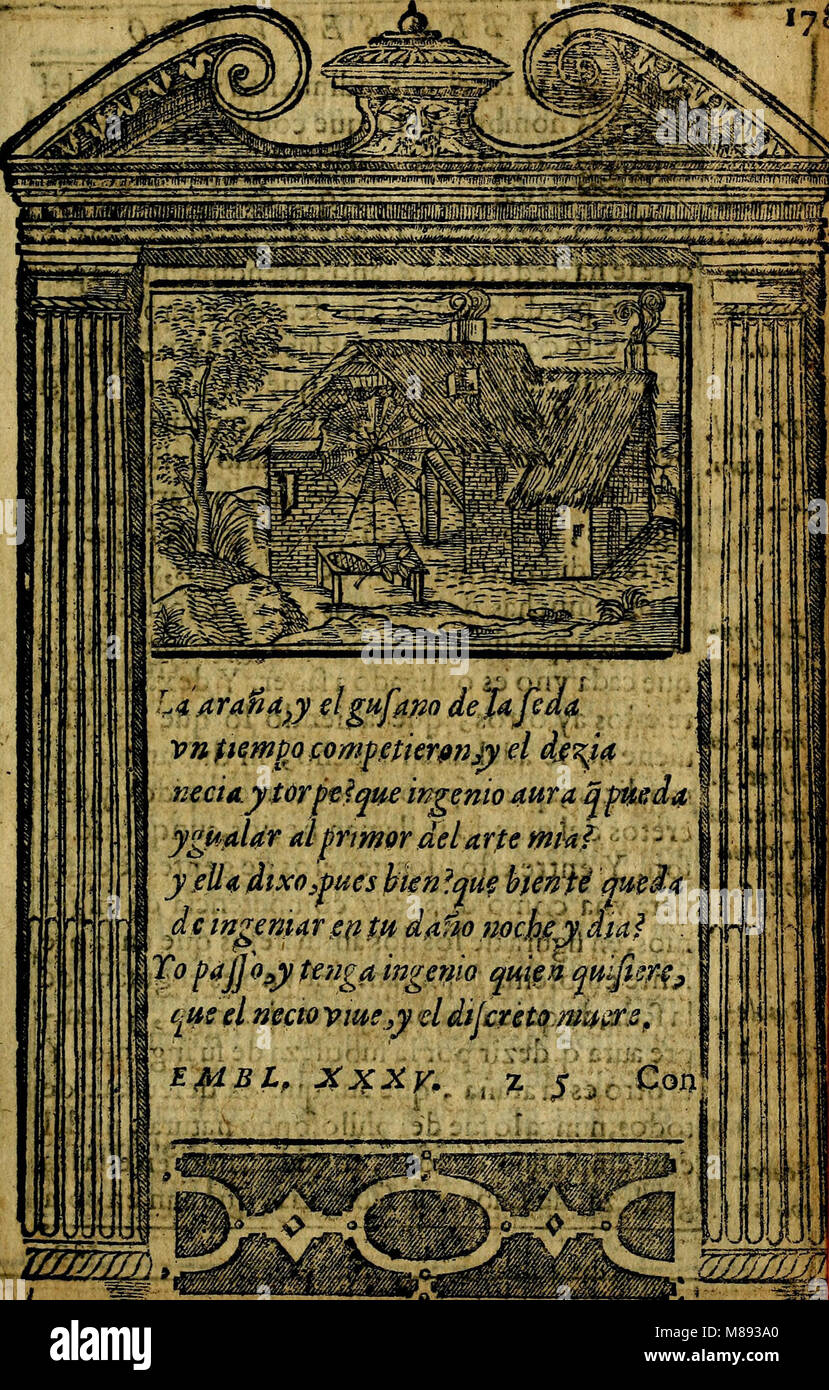 178
La araña, y el guſano de la ſeda
vn tiempo competieron, y el dezia
necia y torpe? que ingenio aura q̃ pueda
ygualar al primor del arte mia?
y ella dixo, pues bien? que bien te queda
de ingeniar en tu daño noche y dia?
Yo paſſo, y tenga ingenio quien quiſiere,
que el necio viue, y el diſcreto muere.
EMBL. XXXV. Z 5 Con
alamy
Image ID: M893A0
www.alamy.com